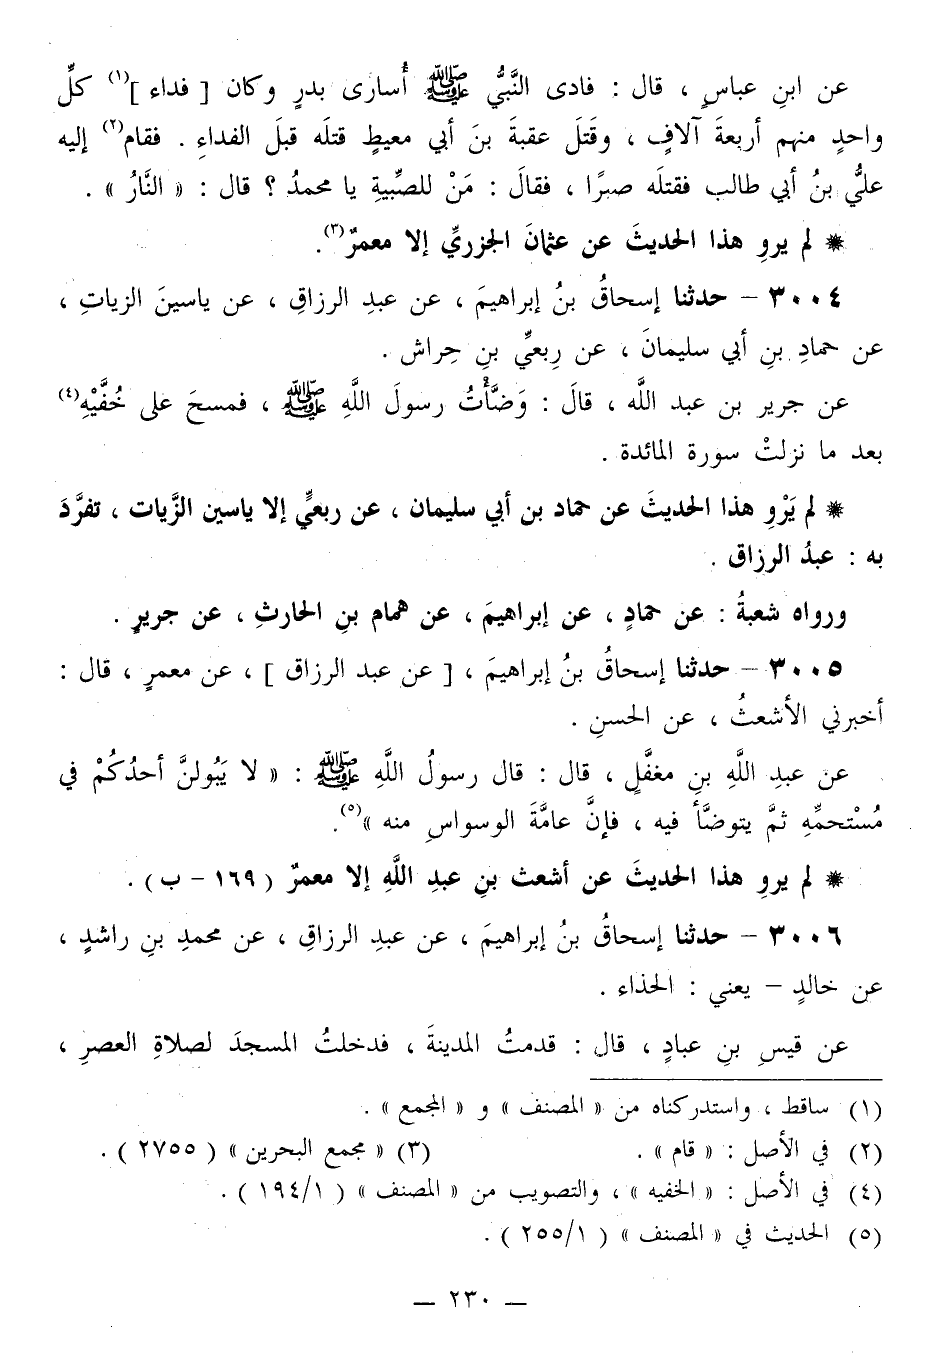 عن ابنِ عباسٍ ، قال : فادى النَّبيُّ ﷺ أُسارى بدرٍ وكان [ فداء ](١) كلِّ
واحدٍ منهم أربعةَ آلافٍ ، وقَتلَ عقبةَ بنَ أبي معيطٍ قتلَه قبلَ الفداءِ . فقام(٢) إليه
عليُّ بنُ أبي طالب فقتلَه صبرًا ، فقالَ : مَنْ للصِّبيةِ يا محمدُ ؟ قال : « النَّارُ » .
* لم يروِ هذا الحديثَ عن عثمانَ الجزريِّ إلا معمرٌ(٣).
٣٠٠٤ – حدثنا إسحاقُ بنُ إبراهيمَ ، عن عبدِ الرزاقِ ، عن ياسينَ الزياتِ ،
عن حمادِ بنِ أبي سليمانَ ، عن رِبعيِّ بنِ حِراش .
عن جرير بن عبد اللَّه ، قالَ : وَضَّأْتُ رسولَ اللَّهِ ﷺ ، فمسحَ على خُفَّيْهِ(٤)
بعد ما نزلتْ سورة المائدة .
* لم يَرْوِ هذا الحديثَ عن حماد بن أبي سليمان ، عن ربعيٍّ إلا ياسين الزَّيات ، تفرَّدَ
به : عبدُ الرزاق .
ورواه شعبةُ : عن حمادٍ ، عن إبراهيمَ ، عن همام بنِ الحارثِ ، عن جريرٍ .
٣٠٠٥ – حدثنا إسحاقُ بنُ إبراهيمَ ، [ عن عبد الرزاق ] ، عن معمرٍ ، قال :
أخبرني الأشعثُ ، عن الحسنِ .
عن عبدِ اللَّهِ بنِ مغفَّلٍ ، قال : قال رسولُ اللَّهِ ﷺ : « لا يَبُولنَّ أحدُكُمْ في
مُسْتحمِّهِ ثمَّ يتوضَّأ فيه ، فإنَّ عامَّةَ الوسواسِ منه »(٥).
* لم يروِ هذا الحديثَ عن أشعث بنِ عبدِ اللَّهِ إلا معمرٌ ( ١٦٩ – ب ) .
٣٠٠٦ – حدثنا إسحاقُ بنُ إبراهيمَ ، عن عبدِ الرزاقِ ، عن محمدِ بنِ راشدٍ ،
عن خالدٍ – يعني : الحذاء .
عن قيسِ بنِ عبادٍ ، قال : قدمتُ المدينةَ ، فدخلتُ المسجدَ لصلاةِ العصرِ ،
(١) ساقط ، واستدركناه من « المصنف » و « المجمع » .
(٢) في الأصل : « قام » . (٣) « مجمع البحرين » ( ٢٧٥٥ ) .
(٤) في الأصل : « الخفيه » ، والتصويب من « المصنف » ( ١٩٤/١ ) .
(٥) الحديث في « المصنف » ( ٢٥٥/١ ) .
— ٢٣٠ —